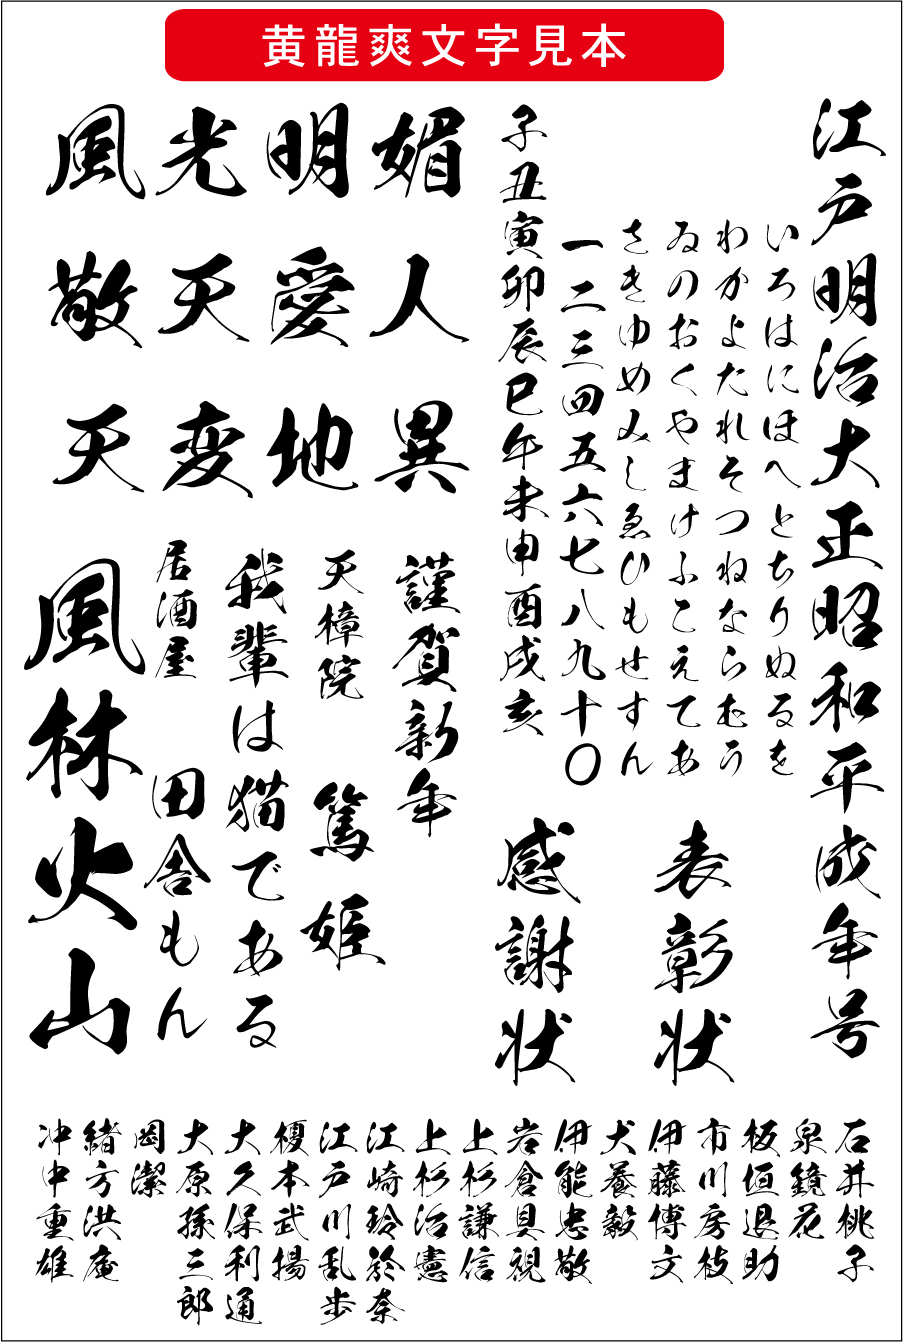 黄龍爽文字見本
江戸明治大正昭和平成年号
いろはにほへとちりぬるを
わかよたれそつねならむう
ゐのおくやまけふこえてあ
さきゆめみしゑひもせすん
一二三四五六七八九十〇
子丑寅卯辰巳午未申酉戌亥
表彰状
感謝状
風光明媚
敬天愛人
天変地異
謹賀新年
天樟院 篤姫
我輩は猫である
居酒屋
田舎もん
風林火山
石井桃子
泉鏡花
板垣退助
市川房枝
伊藤博文
犬養毅
伊能忠敬
岩倉具視
上杉謙信
上杉治憲
江崎玲於奈
江戸川乱歩
榎本武揚
大久保利通
大原孫三郎
岡潔
緒方洪庵
冲中重雄